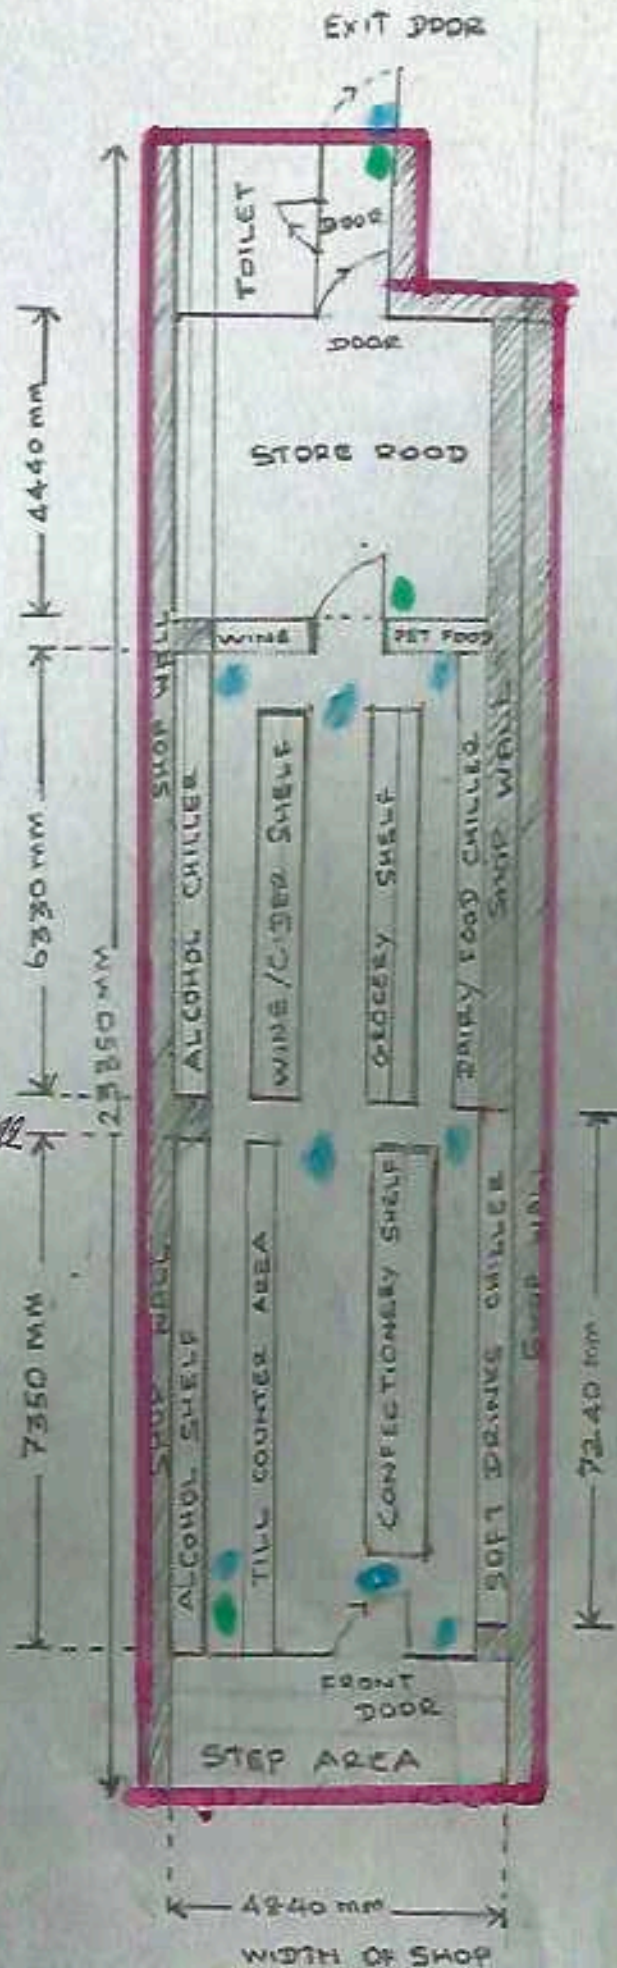 EXIT DOOR
TOILET
DOOR
DOOR
4440 mm
STORE ROOD
WINE
PET FOOD
SHOP WALL
ALCOHOL CHILLER
WINE/CIDER SHELF
GROCERY SHELF
DAIRY FOOD CHILLER
SHOP WALL
6330 mm
23350 MM
7350 MM
SHOP WALL
ALCOHOL SHELF
TILL COUNTER AREA
CONFECTIONERY SHELF
SOFT DRINKS CHILLER
SHOP WALL
7240 mm
FRONT
DOOR
STEP AREA
4840 mm
WIDTH OF SHOP